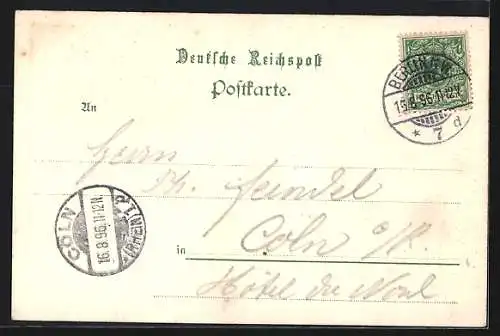 Deutsche Reichspost
Postkarte.
BERLIN
15.8.96.11-12V.
* 7 d
An
Herrn
Th. Heindel
CÖLN
16.8.96.11-12N.
(RHEIN) 1
in Cöln a/R.
Hôtel du Nord